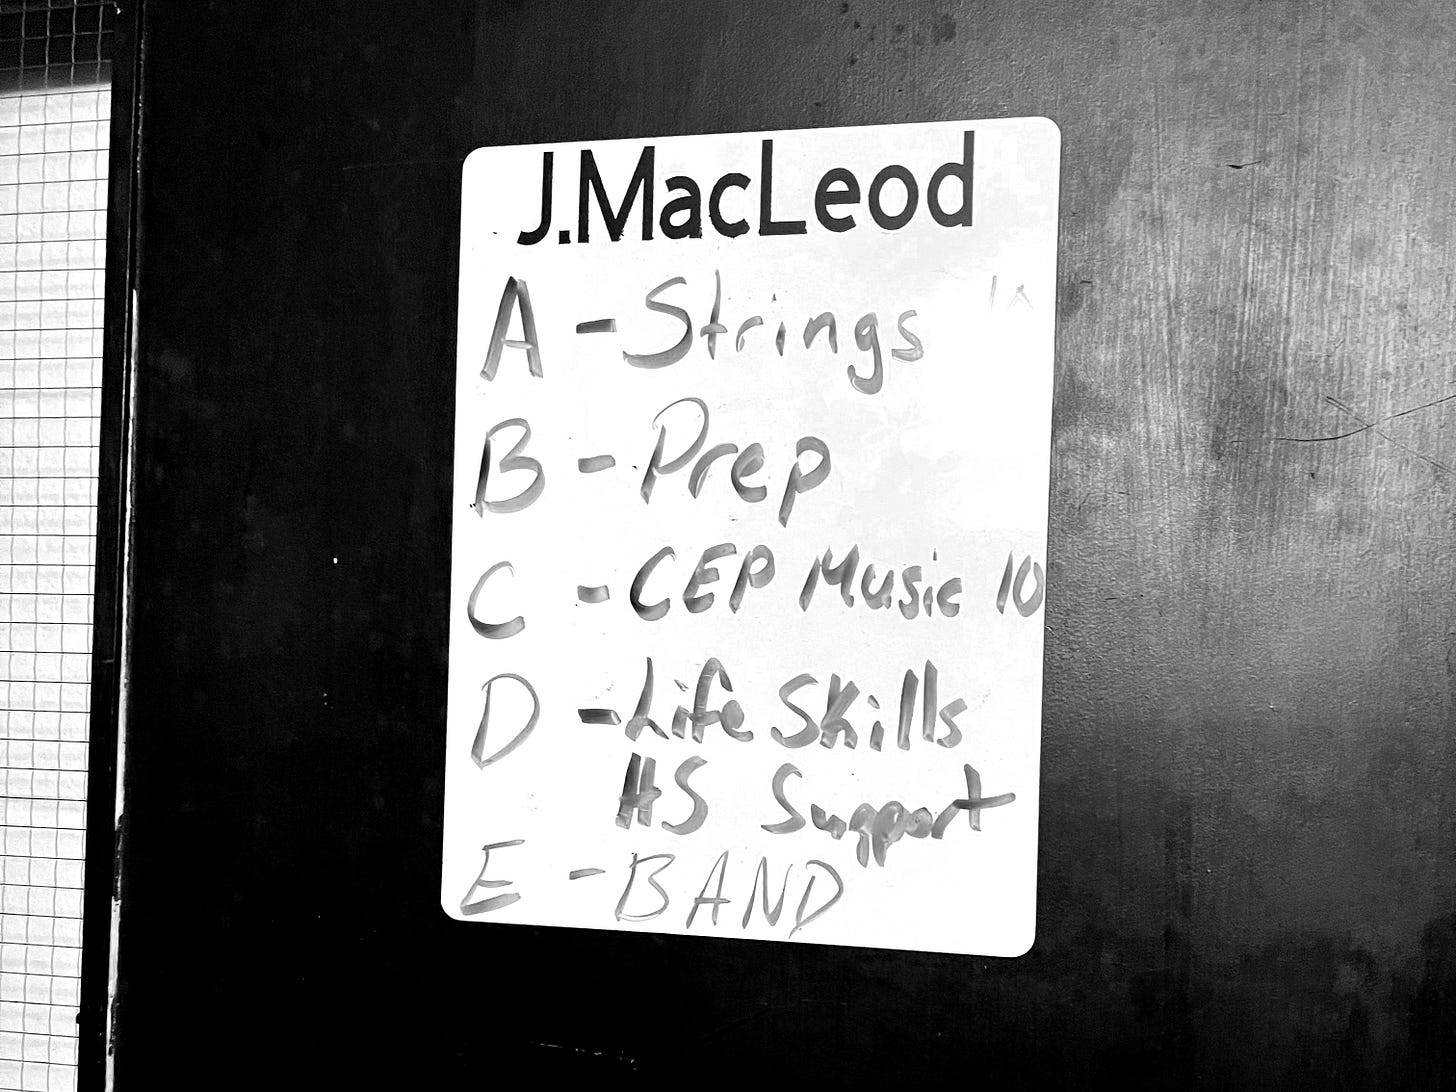 J.MacLeod
A - Strings
B - Prep
C - CEP Music 10
D - Life Skills
HS Support
E - BAND